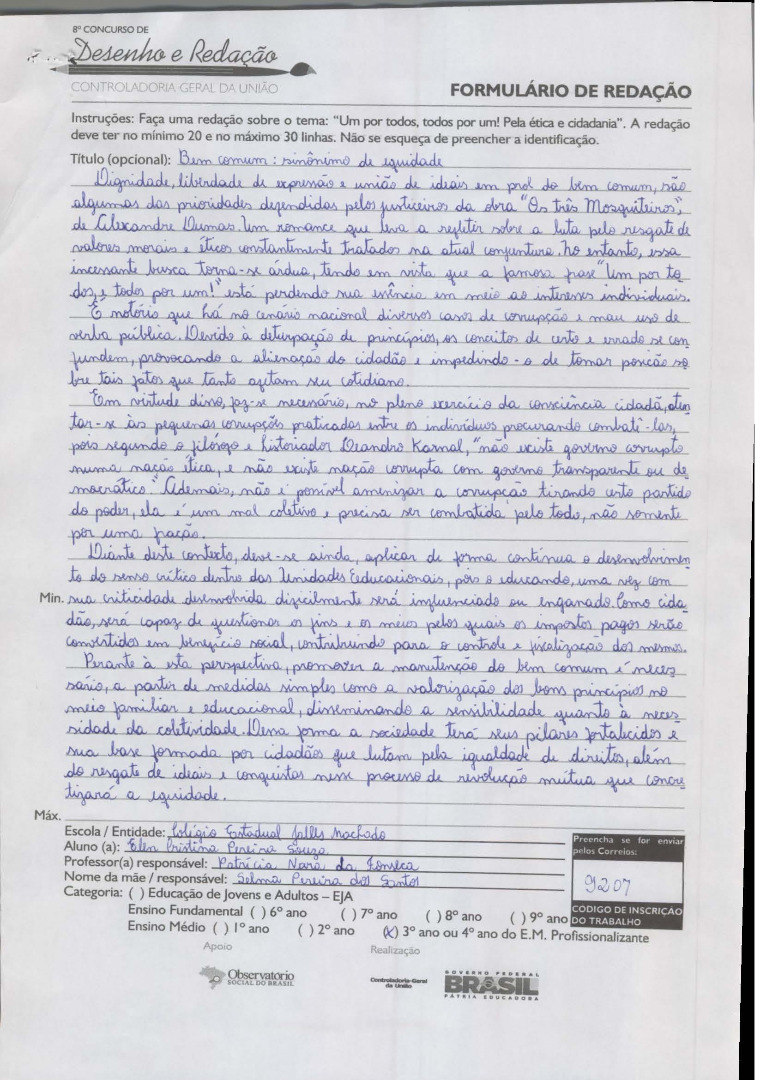 8º CONCURSO DE
Desenho e Redação
CONTROLADORIA GERAL DA UNIÃO
FORMULÁRIO DE REDAÇÃO
Instruções: Faça uma redação sobre o tema: "Um por todos, todos por um! Pela ética e cidadania". A redação
deve ter no mínimo 20 e no máximo 30 linhas. Não se esqueça de preencher a identificação.
Título (opcional): Bem comum: sinônimo de equidade
Dignidade, liberdade de expressão e união de ideais em prol do bem comum, são
algumas das prioridades defendidas pelos justiceiros da obra "Os três Mosquiteiros",
de Alexandre Dumas. Um romance que leva a refletir sobre a luta pelo resgate de
valores morais e éticos constantemente tratados na atual conjuntura. No entanto, essa
incessante busca torna-se árdua, tendo em vista que a famosa frase "Um por to
dos, e todos por um!" está perdendo sua essência em meio ao interesses individuais.
É notório que há no cenário nacional diversos casos de corrupção e mau uso de
verba pública. Devido à deturpação de princípios, os conceitos de certo e errado se con
fundem, provocando a alienação do cidadão e impedindo-o de tomar posição so
bre tais fatos que tanto afetam seu cotidiano.
Em virtude disso, faz-se necessário, no pleno exercício da consciência cidadã, aten
tar-se às pequenas corrupções praticadas entre os indivíduos procurando combatê-las,
pois segundo o filósofo e historiador Leandro Karnal, "não existe governo corrupto
numa nação ética, e não existe nação corrupta com governo transparente ou de
mocrático". Ademais, não é possível amenizar a corrupção tirando certo partido
do poder, ela é um mal coletivo e precisa ser combatida pelo todo, não somente
por uma fração.
Diante deste contexto, deve-se ainda, aplicar de forma contínua o desenvolvimen
to do senso crítico dentro das Unidades Eeducacionais, pois o educando, uma vez com
Min. sua criticidade desenvolvida dificilmente será influenciado ou enganado. Como cida
dão, será capaz de questionar os fins e os meios pelos quais os impostos pagos serão
convertidos em benefício social, contribuindo para o controle e fiscalização dos mesmos.
Perante à esta perspectiva, promover a manutenção do bem comum é neces
sário, a partir de medidas simples como a valorização dos bons princípios no
meio familiar e educacional, disseminando a sensibilidade quanto à neces
sidade da coletividade. Dessa forma a sociedade terá seus pilares fortalecidos e
sua base formada por cidadãos que lutam pela igualdade de direitos, além
do resgate de ideais e conquistas nesse processo de revolução mútua que concre
tizará a equidade.
Máx.
Escola / Entidade: Colégio Estadual Jalles Machado
Aluno (a): Elen Cristina Pereira Souza
Professor(a) responsável: Patrícia Nara da Fonsêca
Nome da mãe / responsável: Selma Pereira dos Santos
Categoria: ( ) Educação de Jovens e Adultos – EJA
Ensino Fundamental ( ) 6º ano ( ) 7º ano ( ) 8º ano ( ) 9º ano
Ensino Médio ( ) 1º ano ( ) 2º ano (x) 3º ano ou 4º ano do E.M. Profissionalizante
Preencha se for enviar
pelos Correios:
9207
CODIGO DE INSCRIÇÃO
DO TRABALHO
Apoio
Realização
Observatório
SOCIAL DO BRASIL
Controladoria-Geral
da União
GOVERNO FEDERAL
BRASIL
PÁTRIA EDUCADORA